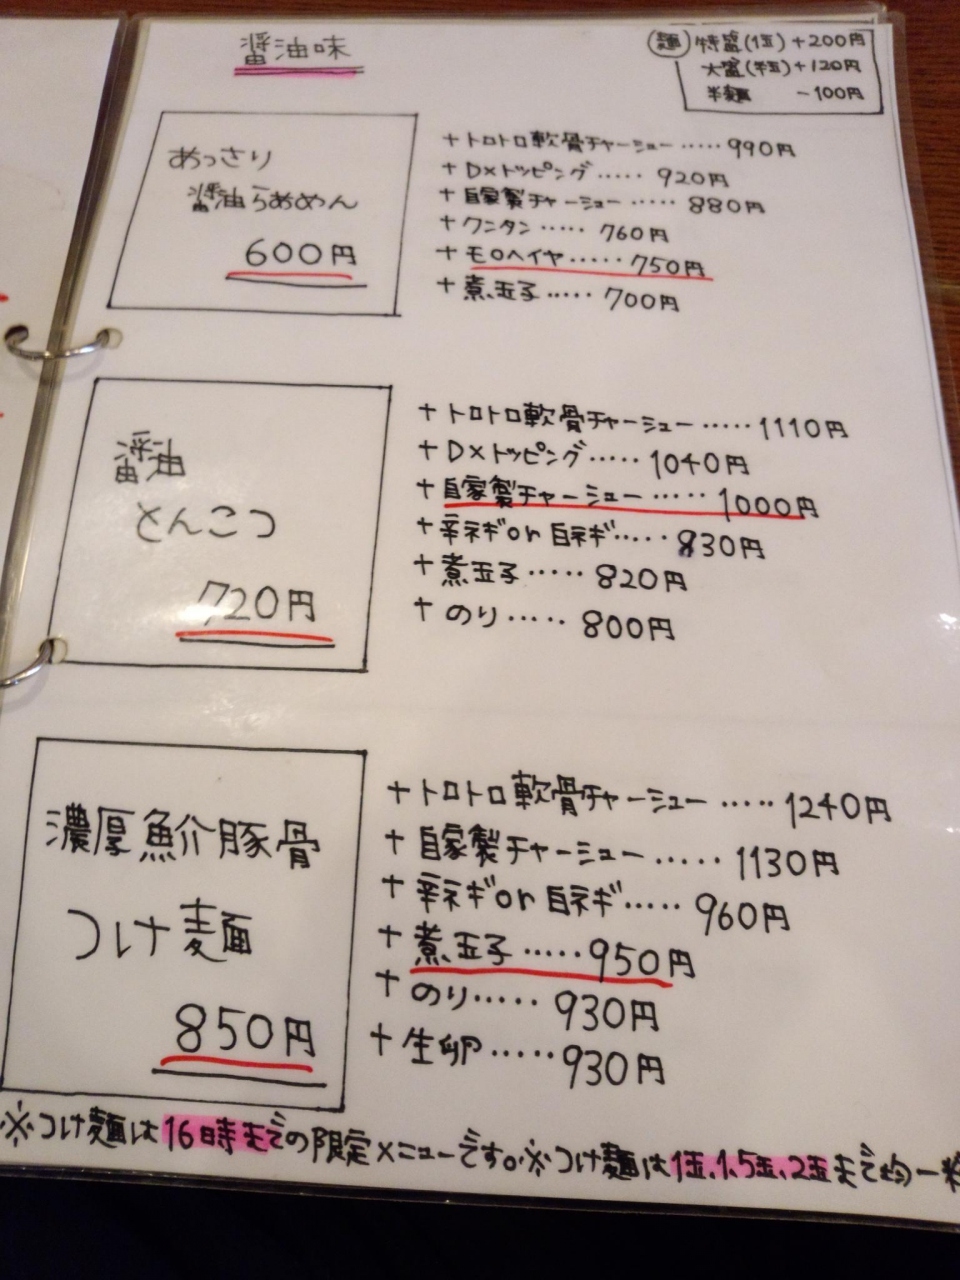 醤油味
麺 特盛(1玉)+200円
大盛(半玉)+120円
半麺 -100円
あっさり
醤油らぁめん
600円
+トロトロ軟骨チャーシュー‥‥‥990円
+D×トッピング‥‥‥920円
+自家製チャーシュー‥‥‥880円
+ワンタン‥‥‥760円
+モロヘイヤ‥‥‥750円
+煮玉子‥‥‥700円
醤油
とんこつ
720円
+トロトロ軟骨チャーシュー‥‥‥1110円
+D×トッピング‥‥‥1040円
+自家製チャーシュー‥‥‥1000円
+辛ネギor白ネギ‥‥‥830円
+煮玉子‥‥‥820円
+のり‥‥‥800円
濃厚魚介豚骨
つけ麺
850円
+トロトロ軟骨チャーシュー‥‥‥1240円
+自家製チャーシュー‥‥‥1130円
+辛ネギor白ネギ‥‥‥960円
+煮玉子‥‥‥950円
+のり‥‥‥930円
+生卵‥‥‥930円
※つけ麺は16時までの限定メニューです。※つけ麺は1玉、1.5玉、2玉まで均一